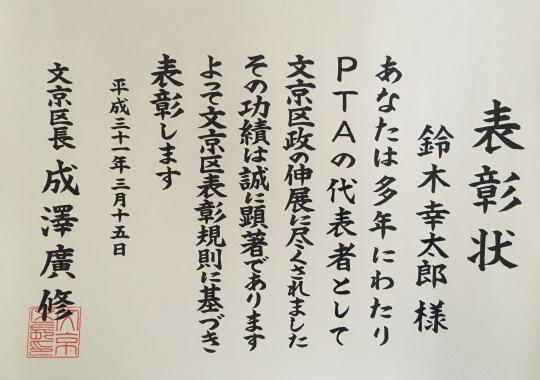 表彰状
鈴木幸太郎様
あなたは多年にわたり
PTAの代表者として
文京区政の伸展に尽くされました
その功績は誠に顕著であります
よって文京区表彰規則に基づき
表彰します
平成三十一年三月十五日
文京区長 成澤廣修
文京区長之印